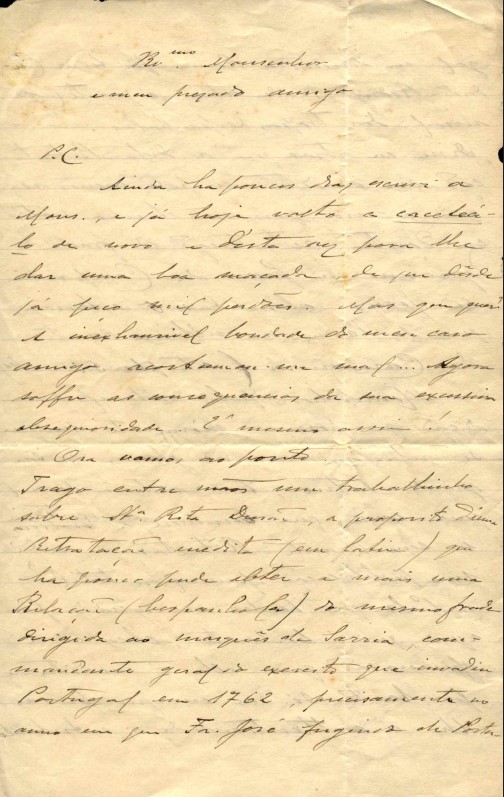 Rv.mo Monsenhor
e meu prezado amigo
P.C.
Ainda ha poucos dias escrevi a
Mons., e já hoje volto a caceteá-
lo de novo e désta vez para lhe
dar uma boa maçada de que désde
já peço mil perdões. Mas que quer?
A inéxhaurivel bondade do meu caro
amigo acostumou-me mal... Agora
soffra as consequencias da sua excessiva
obsequiosidade. É mesmo assim!
Ora vamos ao ponto
Trago entre mãos um trabalhinho
sobre Sta. Rita Durão, a proposito d'uma
Retratação inédita (em latim) que
ha pouco pude obter e mais uma
Relação (hespanhola) do mesmo frade
dirigida ao marquês de Sarria, com-
mandante geral do exercito que invadiu
Portugal em 1762, precisamente no
anno em que Fr. José fugira de Portu